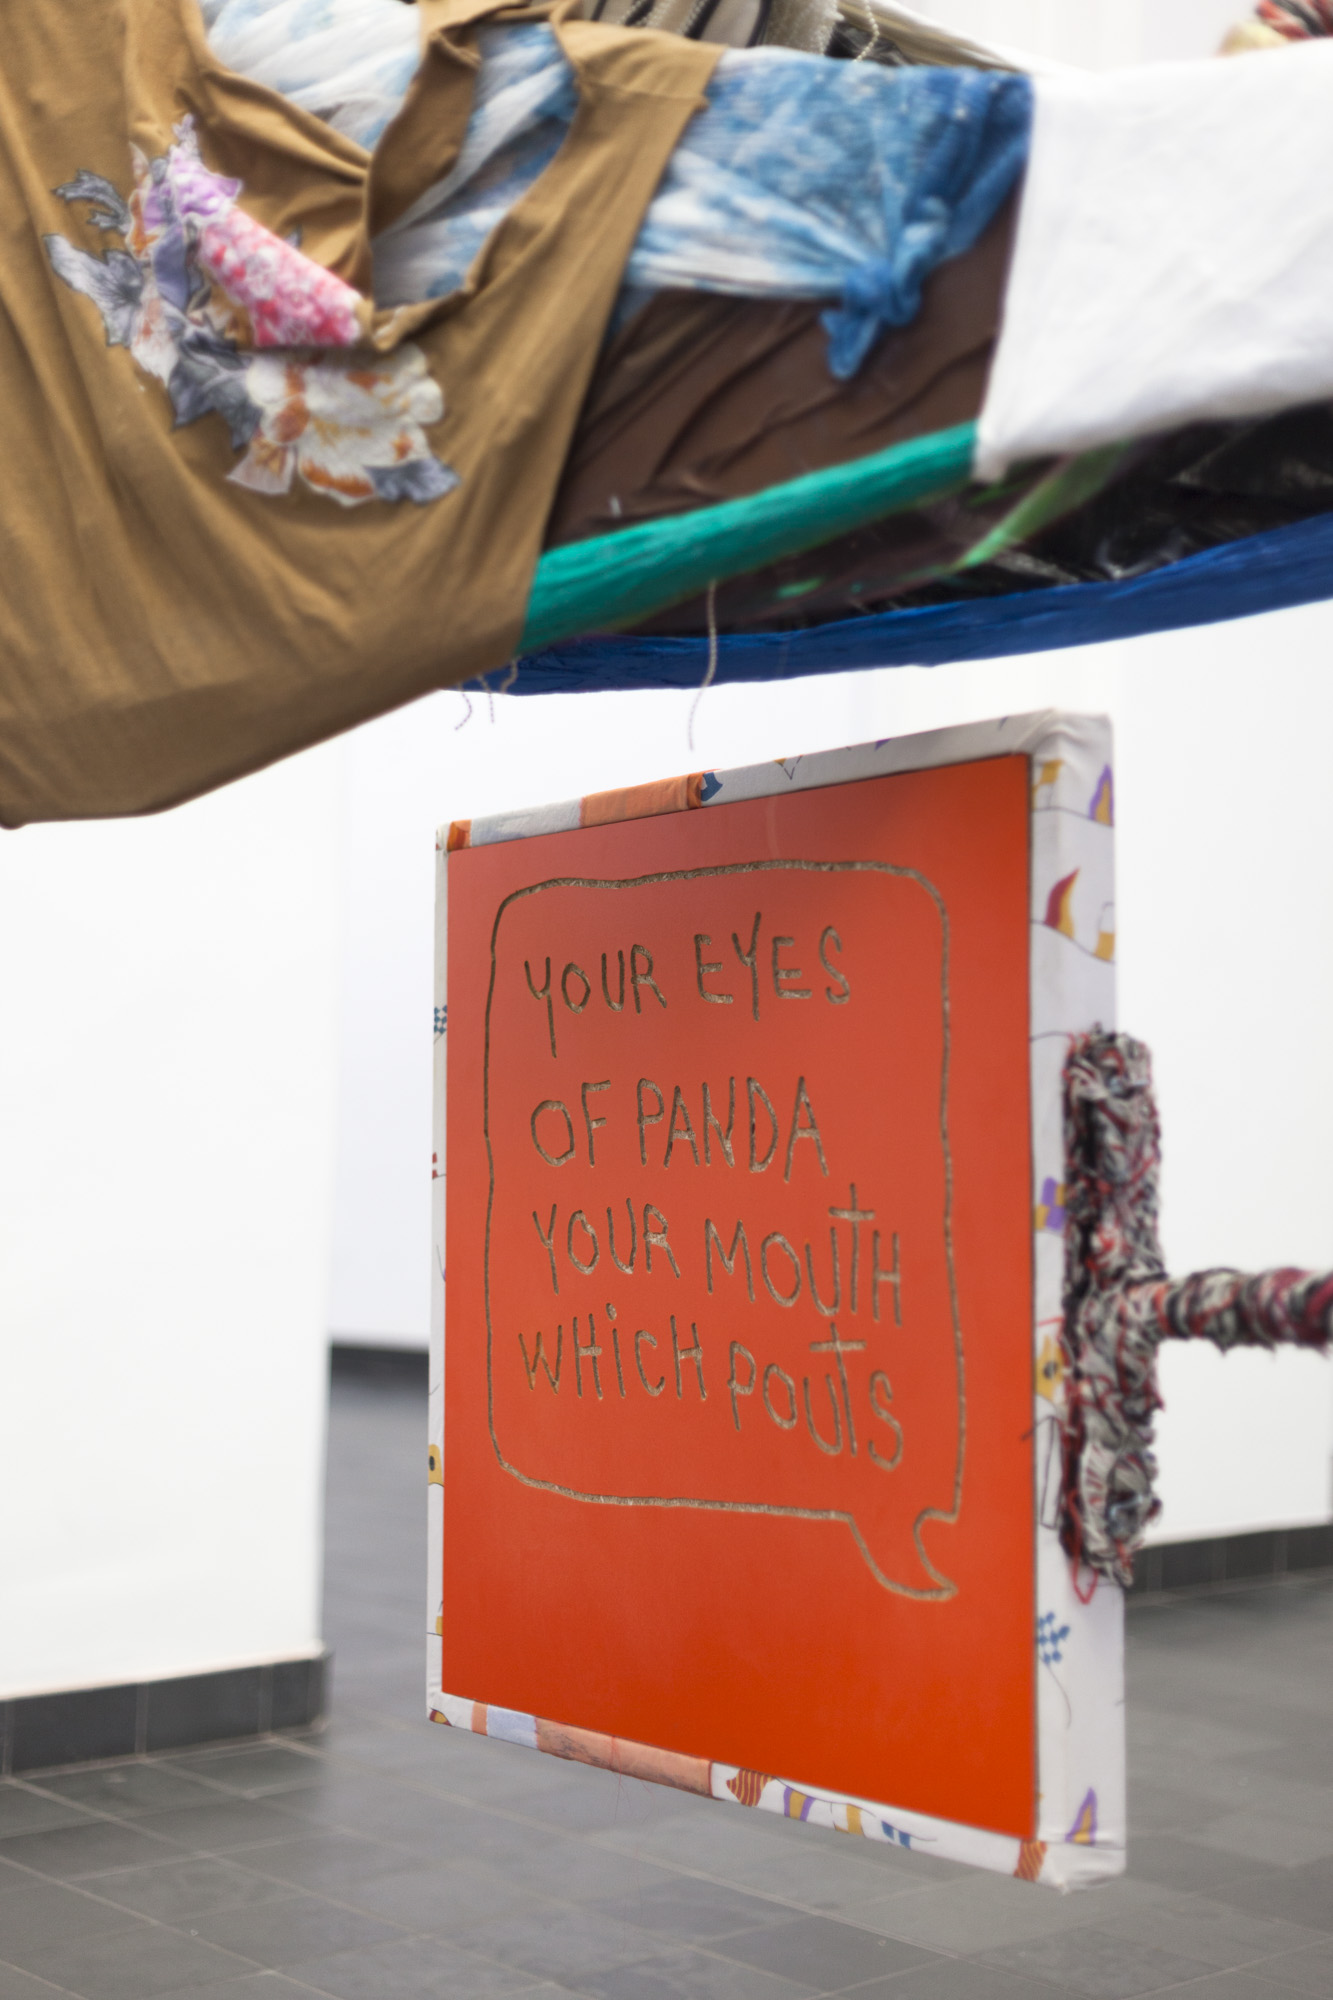 YOUR EYES
OF PANDA
YOUR MOUTH
WHiCH POUTS